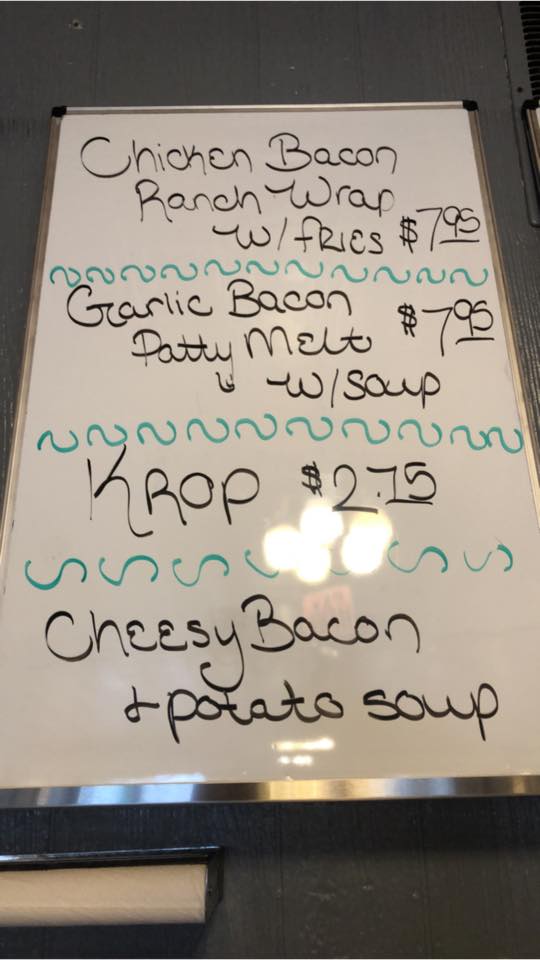 Chicken Bacon
Ranch Wrap
W/FRIES $7.95
Garlic Bacon $7.95
Patty Melt
W/SOUP
KROP $2.75
CHEESY Bacon
+ potato soup